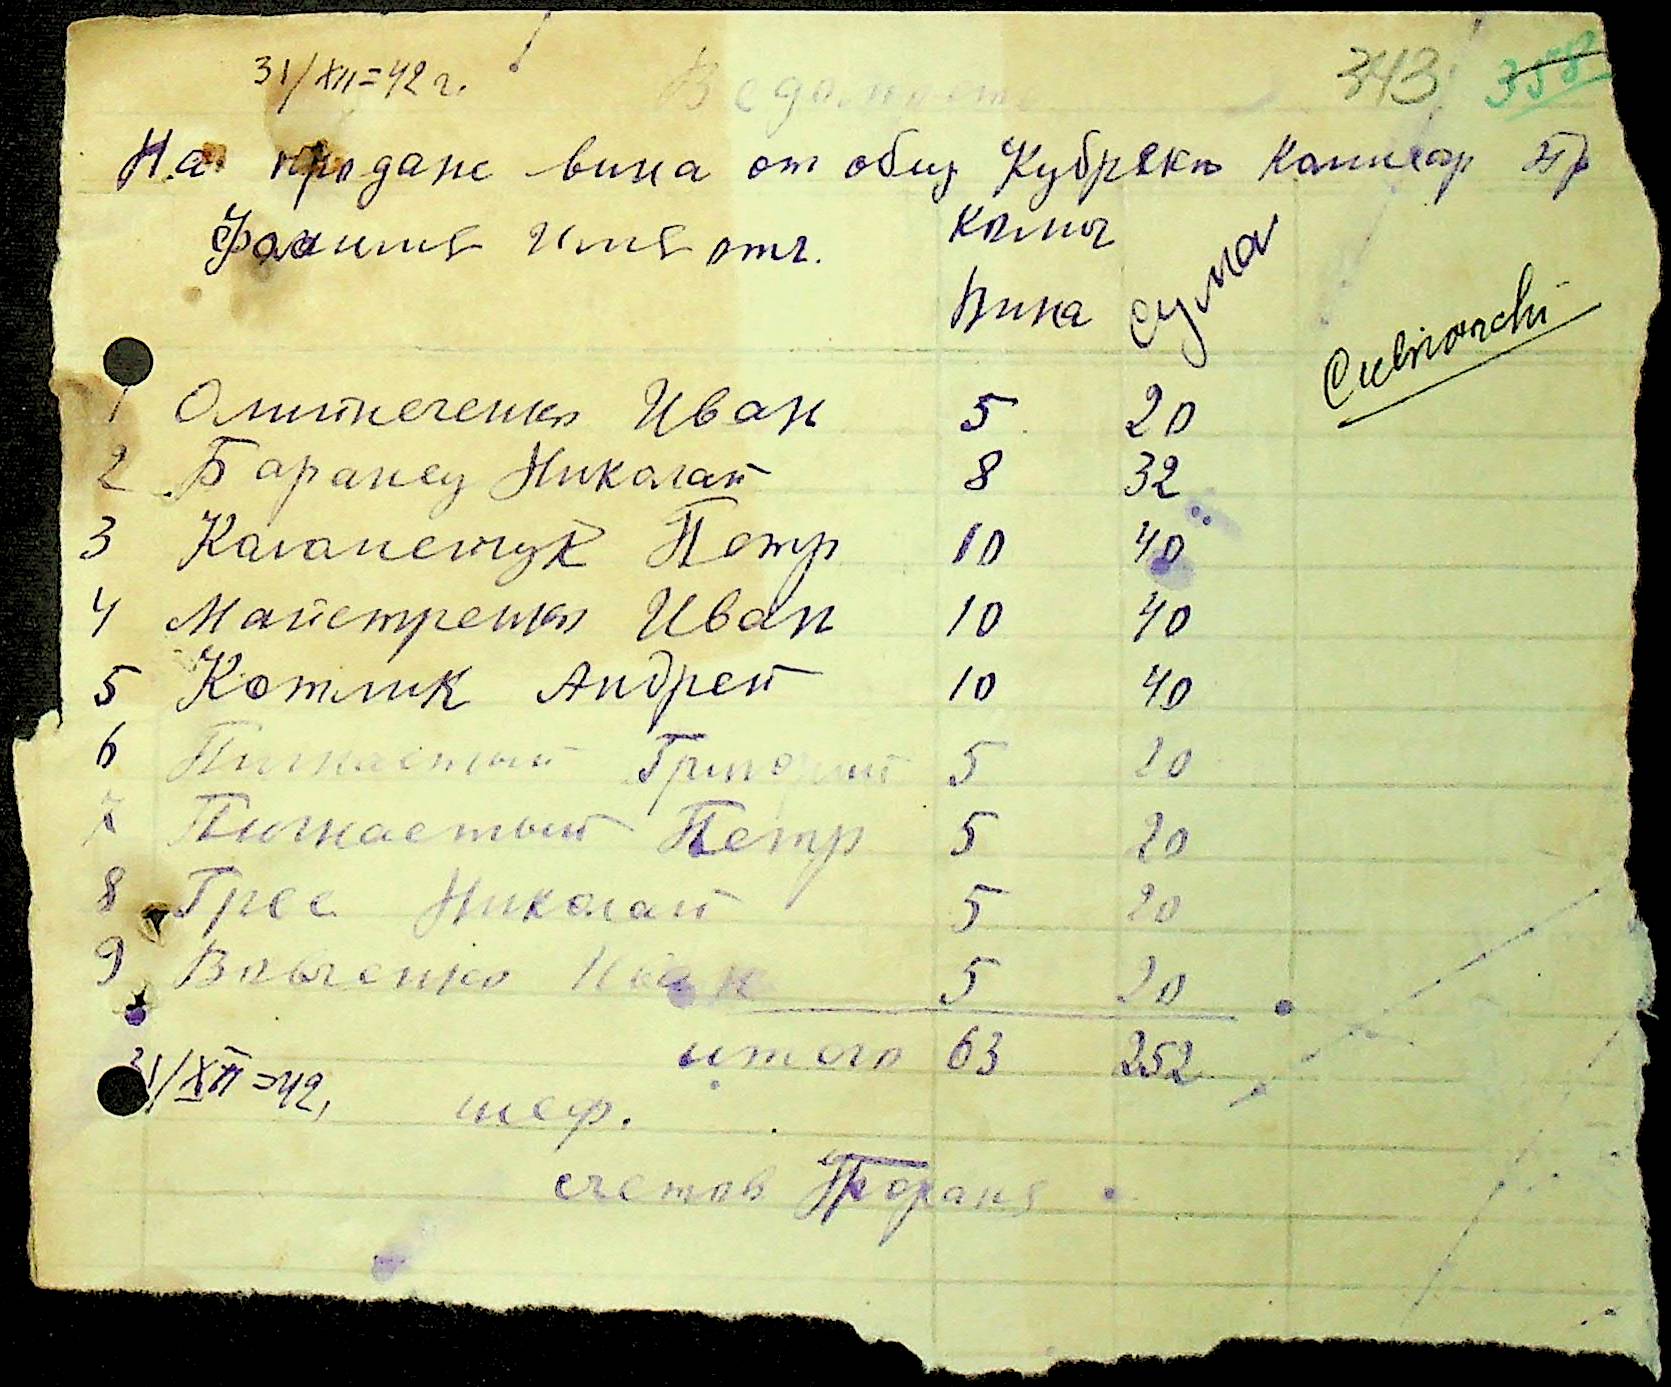 31/XII=42 г. Ведомость 343 358
На продаже вина от общ Кубряки
Фамилия Имя отч. Колич вина сума
Cubriorchi
1 Иван 5 20
2 Баранец Николай 8 32
3 Петр 10 40
4 Майстренко Иван 10 40
5 Котлик Андрей 10 40
6 Пижастый Григорий 5 20
7 Пижастый Петр 5 20
8 Грес Николай 5 20
9 Иван 5 20
итого 63 252
31/XII=42, шеф.
счетов